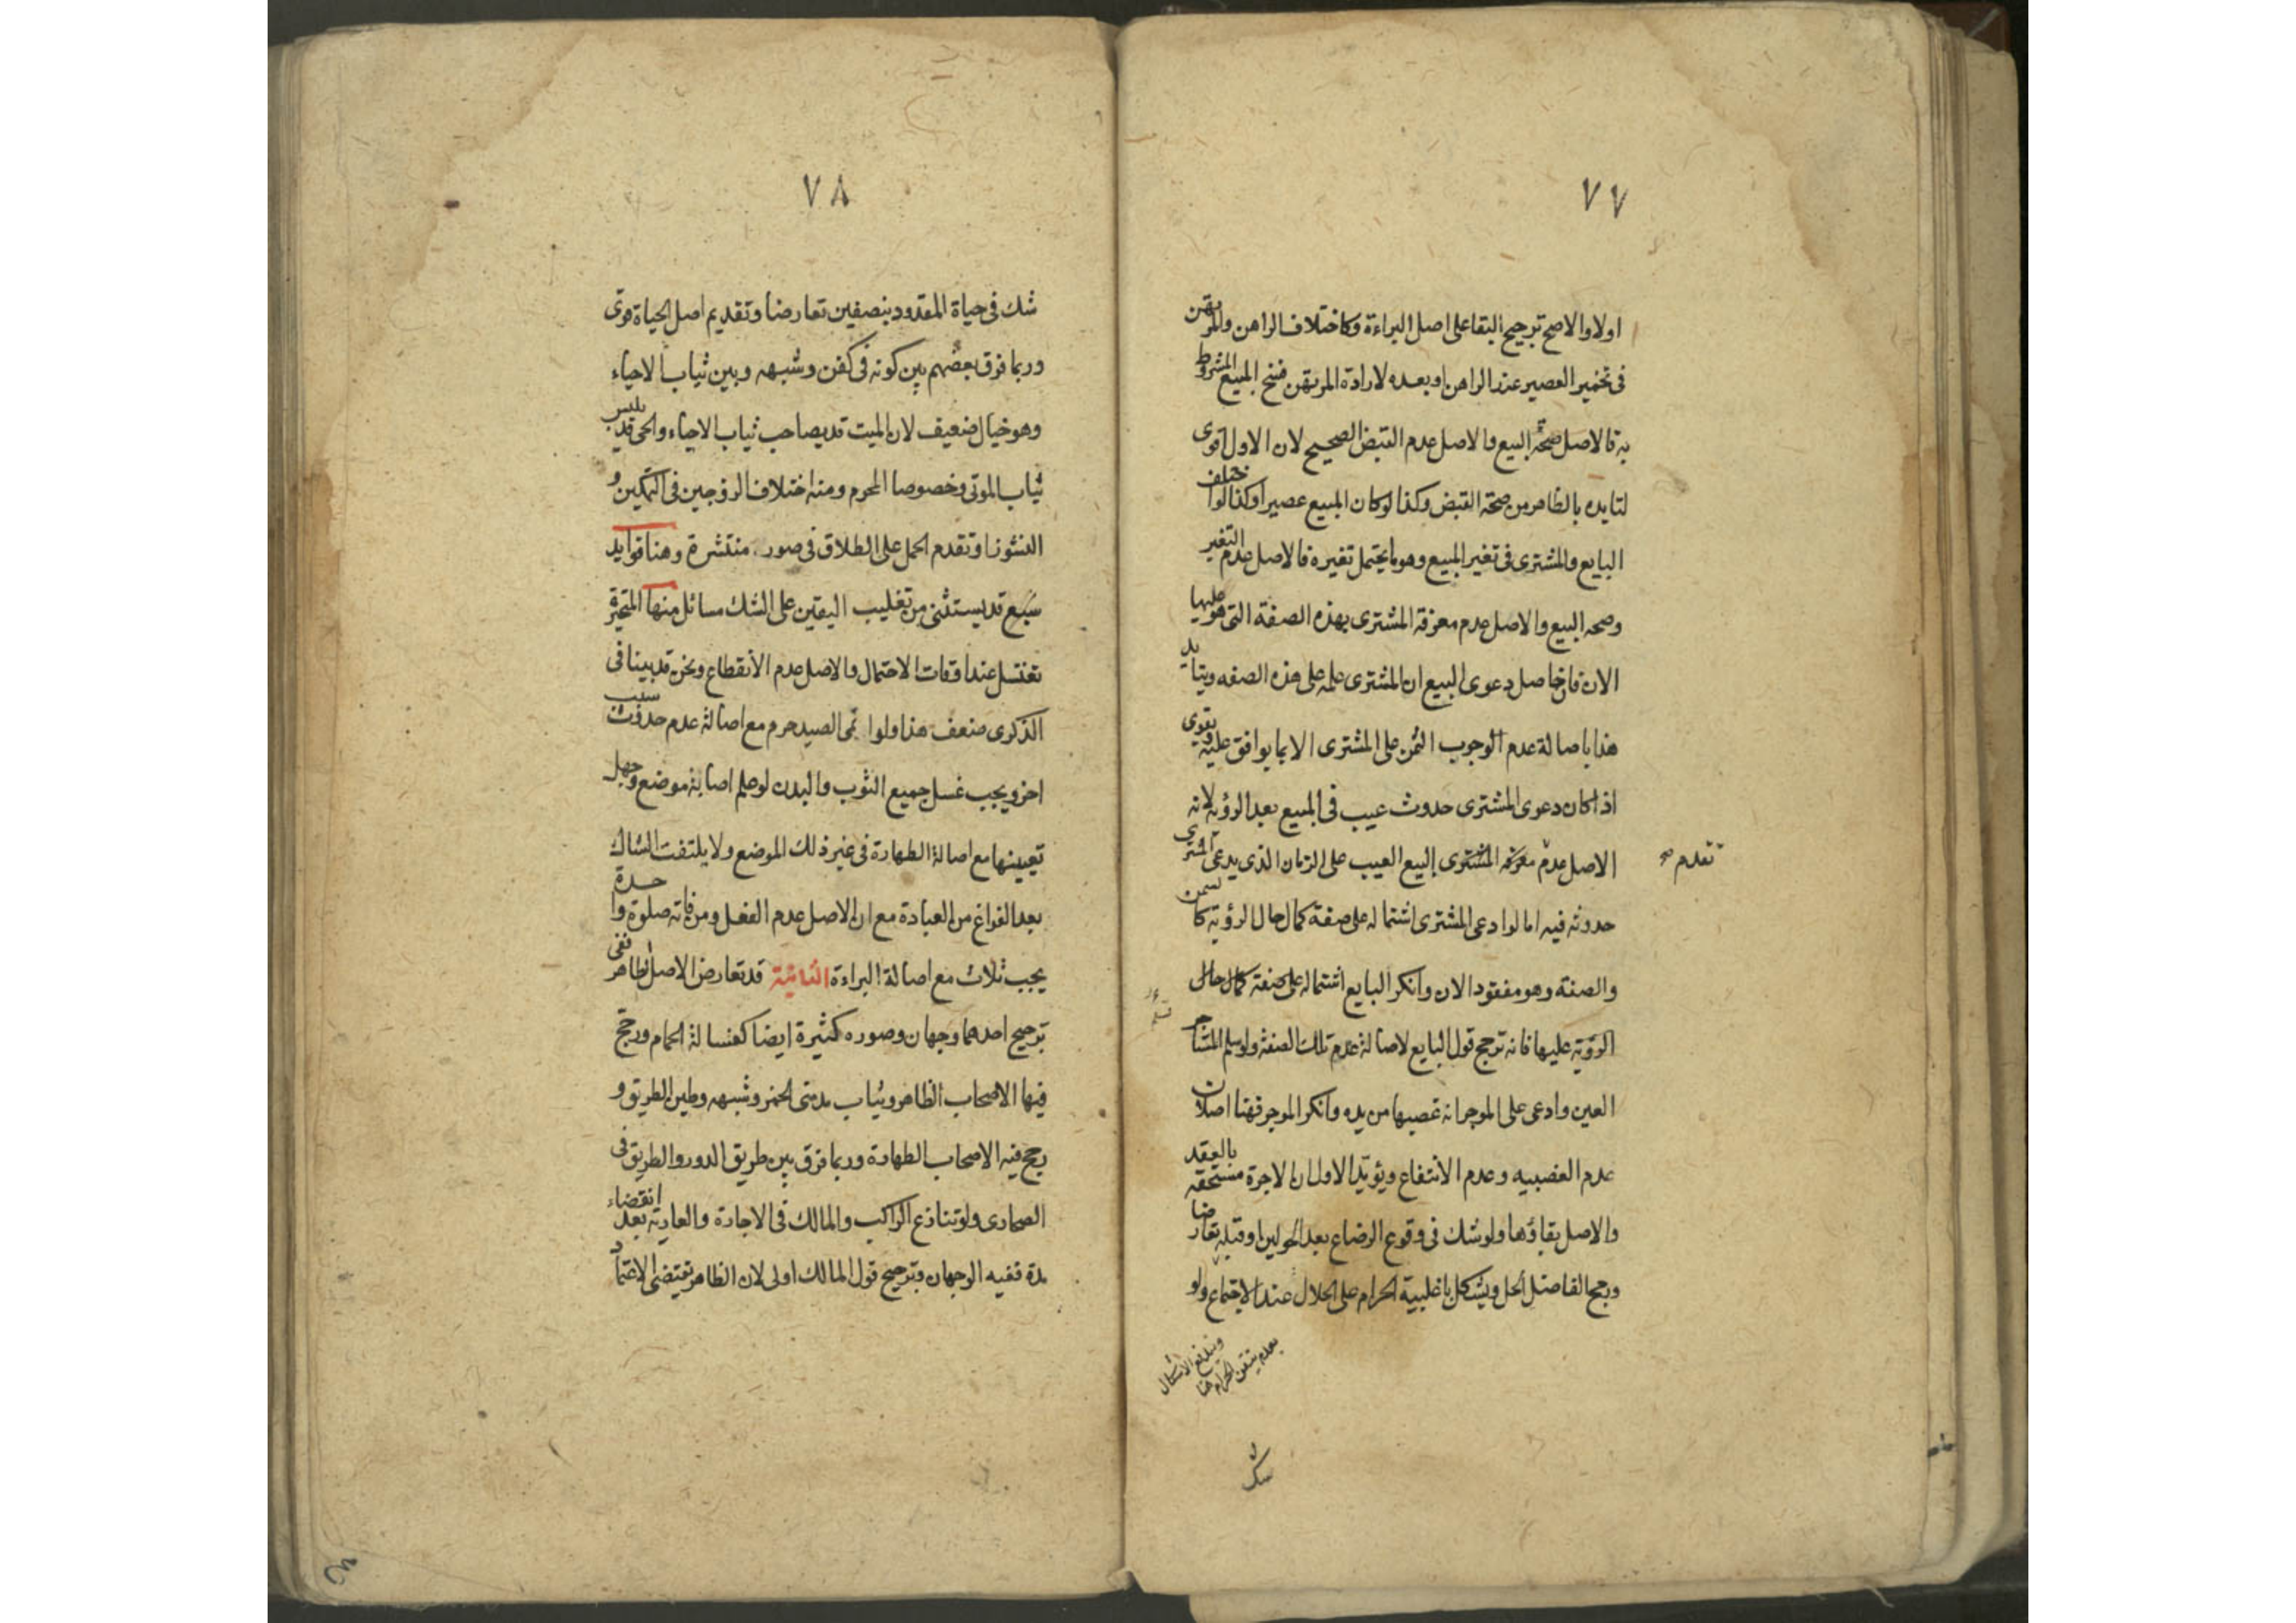 ٧٧
اولا والاصح ترجيح البقا على اصل البراءة وكاختلاف الراهن والمرتهن
فى تخمير العصير عند الراهن او بعده لارادة المرتهن فسخ المبيع المشروط
به فالاصل صحة البيع والاصل عدم القبض الصحيح لان الاول اقوى
لتايده بالظاهر من صحة القبض وكذا لو كان المبيع عصيرا وكذا لو اختلف
البايع والمشترى فى تغير المبيع وهو ما يحتمل تغيره فالاصل عدم التغير
وصحه البيع والاصل عدم معرفة المشترى بهذه الصفة التى هو عليها
الان فان حاصل دعوى البيع ان المشترى علمه على هذه الصفه ويتايد
هذا باصالة عدم الوجوب الثمن على المشترى الا بما يوافق عليه ويقوى
اذا كان دعوى المشترى حدوث عيب فى المبيع بعد الرؤية لانه
الاصل عدم معرفه المشترى البيع العيب على الزمان الذى يدعى المشترى
تقدم صح
حدوثه فيه اما لو ادعى المشترى اشتماله على صفة كمال حال الرؤية كالسمن
والصنعة وهو مفقود الان وانكر البايع اشتماله على صفة كمال حال
الرؤية عليها فانه ترجح قول البايع لاصالة عدم تلك الصفة ولو سلم المستاجر
العين وادعى على الموجر انه غصبها من يده وانكر الموجر فهنا اصلان
عدم الغصبيه وعدم الانتفاع ويؤيد الاول ان الاجرة مستحقه بالعقد
والاصل بقاؤها ولو شك فى وقوع الرضاع بعد الحولين او قبله تعارضا
ورجح الفاضل الحل ويشكل باغلبية الحرام على الحلال عند الاجتماع ولو
ويندفع الاشكال
بعدم تيقن الحرام هنا
شك
٧٨
شك فى حياة المقدود بنصفين تعارضا وتقديم اصل الحياة قوى
وربما فرق بعضهم بين كونه فى كفن وشبهه وبين ثياب الاحياء
وهو خيال ضعيف لان الميت قد يصاحب ثياب الاحياء والحى قد يلبس
ثياب الموتى وخصوصا المحرم ومنه اختلاف الزوجين فى التمكين و
النشوز او تقدم الحمل على الطلاق فى صور منتشرة وهنا فوايد
سبع قد يستثنى من تغليب اليقين على الشك مسائل منها المتحيرة
تغتسل عند اوقات الاحتمال والاصل عدم الانقطاع ونحن قد بينا فى
الذكرى ضعف هذا ولو رمى الصيد حرم مع اصالة عدم حدوث سبب
اخر ويجب غسل جميع الثوب والبدن لو علم اصابة موضع وجهل
تعيينها مع اصالة الطهارة فى غير ذلك الموضع ولا يلتفت الشاك
بعد الفراغ من العبادة مع ان الاصل عدم الفعل ومن فاته صلوة واحدة
يجب ثلاث مع اصالة البراءة الثانية قد تعارض الاصل لظاهر ففى
ترجيح احدهما وجهان وصوره كثيرة ايضا كغسالة الحمام ورجح
فيها الاصحاب الظاهر وثياب مدمنى الخمر وشبهه وطين الطريق و
رجح فيه الاصحاب الطهارة وربما فرق بين طريق الدور والطريق فى
الصحارى ولو تنازع الراكب والمالك فى الاجارة والعارية بعد انقضاء
مدة ففيه الوجهان وترجيح قول المالك اولى لان الظاهر تقتضى الاعتماد